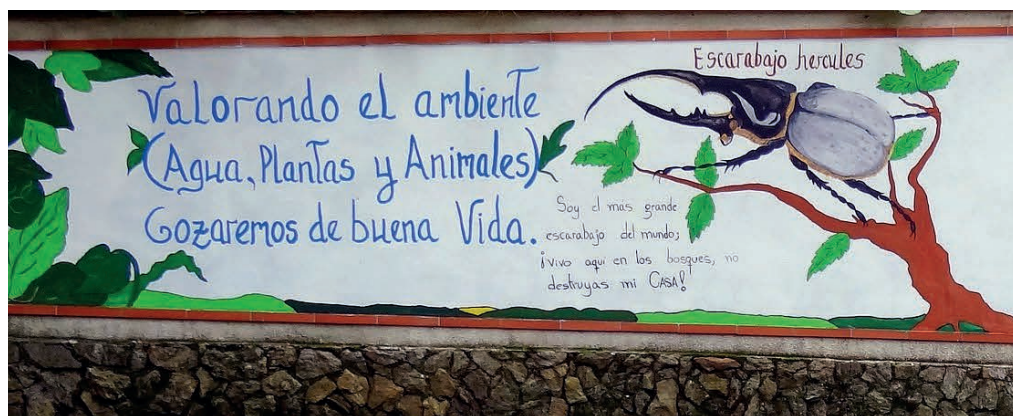 Valorando el ambiente
(Agua, Plantas y Animales)
Gozaremos de buena Vida.
Escarabajo hercules
Soy el mas grande
escarabajo del mundo;
¡vivo aquí en los bosques, no
destruyas mi CASA!